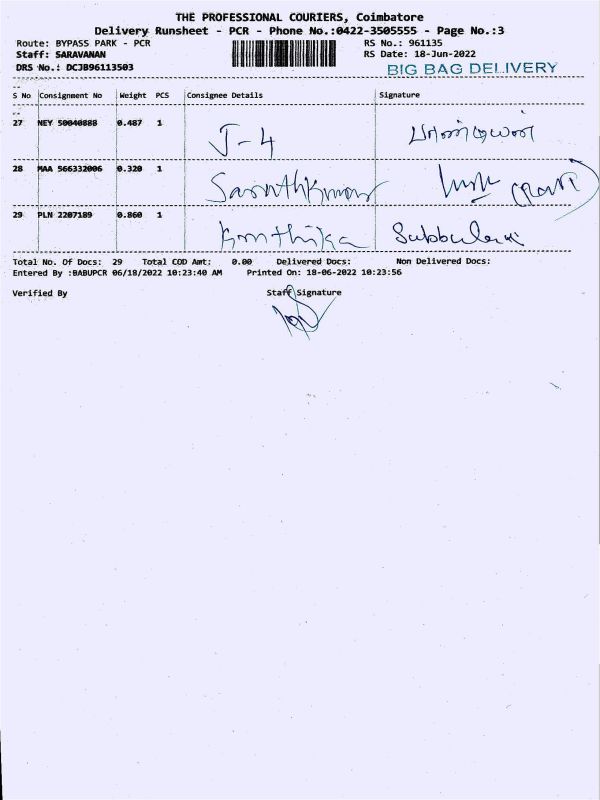 THE PROFESSIONAL COURIERS, Coimbatore
Delivery Runsheet - PCR - Phone No.:0422-3505555 - Page No.:3
Route: BYPASS PARK - PCR RS No.: 961135
Staff: SARAVANAN RS Date: 18-Jun-2022
DRS No.: DCJB96113503 BIG BAG DELIVERY
S No Consignment No Weight PCS Consignee Details Signature
27 NEY 50040888 0.487 1 J-4 பாண்டியன்
28 MAA 566332006 0.320 1
29 PLN 2207189 0.860 1
Total No. Of Docs: 29 Total COD Amt: 0.00 Delivered Docs: Non Delivered Docs:
Entered By :BABUPCR 06/18/2022 10:23:40 AM Printed On: 18-06-2022 10:23:56
Verified By Staff Signature